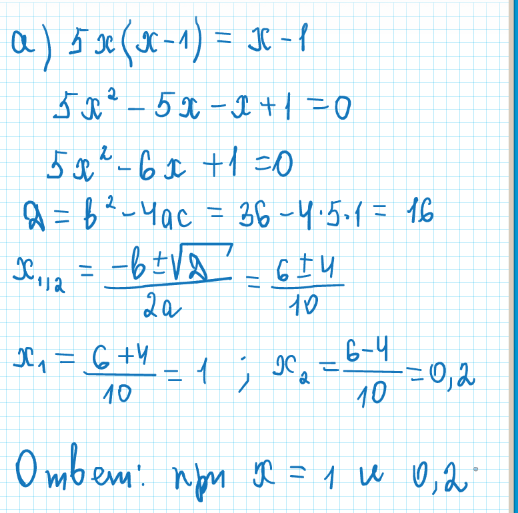 а) 5x(x-1) = x-1
5x² - 5x - x + 1 = 0
5x² - 6x + 1 = 0
D = b² - 4ac = 36 - 4·5·1 = 16
x₁,₂ = (-b ± √D)/(2a) = (6 ± 4)/10
x₁ = (6+4)/10 = 1 ; x₂ = (6-4)/10 = 0,2
Ответ: при x = 1 и 0,2